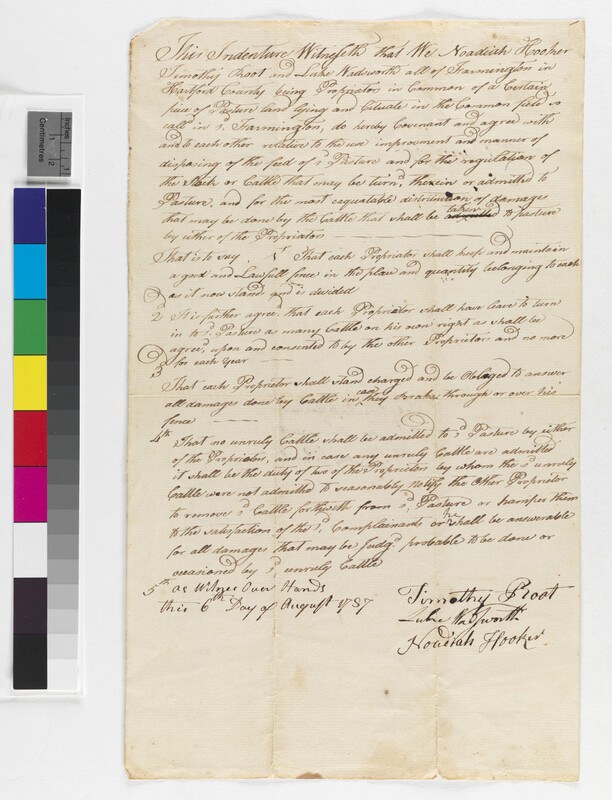 This Indenture Witnesseth that We Noadiah Hooker
Timothy Root and Luke Wadsworth all of Farmington in
Hartford County being Proprietors in Common of a Certain
piece of Pasture land lying and Situate in the Common field so
calld in sd. Farmington, do hereby Covenant and agree with
and to each other relative to the use improvment and manner of
disposing of the feed of sd Pasture and for the regulation of
the Stock or Cattle that may be turnd. therein or admitted to
Pasture, and for the most equatable distribution of damages
that may be done by the Cattle that shall be admitted taken to pasture
by either of the Proprietors
That is to say, 1st That each Proprietor shall keep and maintain
a good and Lawfull fence in the place and quantity belonging to each
as it now stand and is divided
2d It is further agreed that each Proprietor shall have leave to turn
in to sd. Pasture as many Cattle on his own right as shall be
agreed upon and consented to by the other Proprietors and no more
for each Year
3
That each Proprietor shall stand charged and be Obleged to answer
all damages done by Cattle in case they Brake through or over his
fence
4th That no unruly Cattle shall be admitted to sd Pasture by either
of the Proprietors, and in case any unruly Cattle are admitted
it shall be the duty of two of the Proprietors by whom the sd unruly
Cattle were not admitted to seasonably Notify the Other Proprietor
to remove sd. Cattle forthwith from sd. Pasture or hamper them
to the satisfaction of the sd. Complainants or he shall be answerable
for all damages that may be Judgd. probable to be done or
occasioned by sd. unruly Cattle
5th as Witness Over Hands
this 6th Day of August 1787
Timothy Root
Luke Wadsworth
Noadiah Hooker
Inches
Centimetres